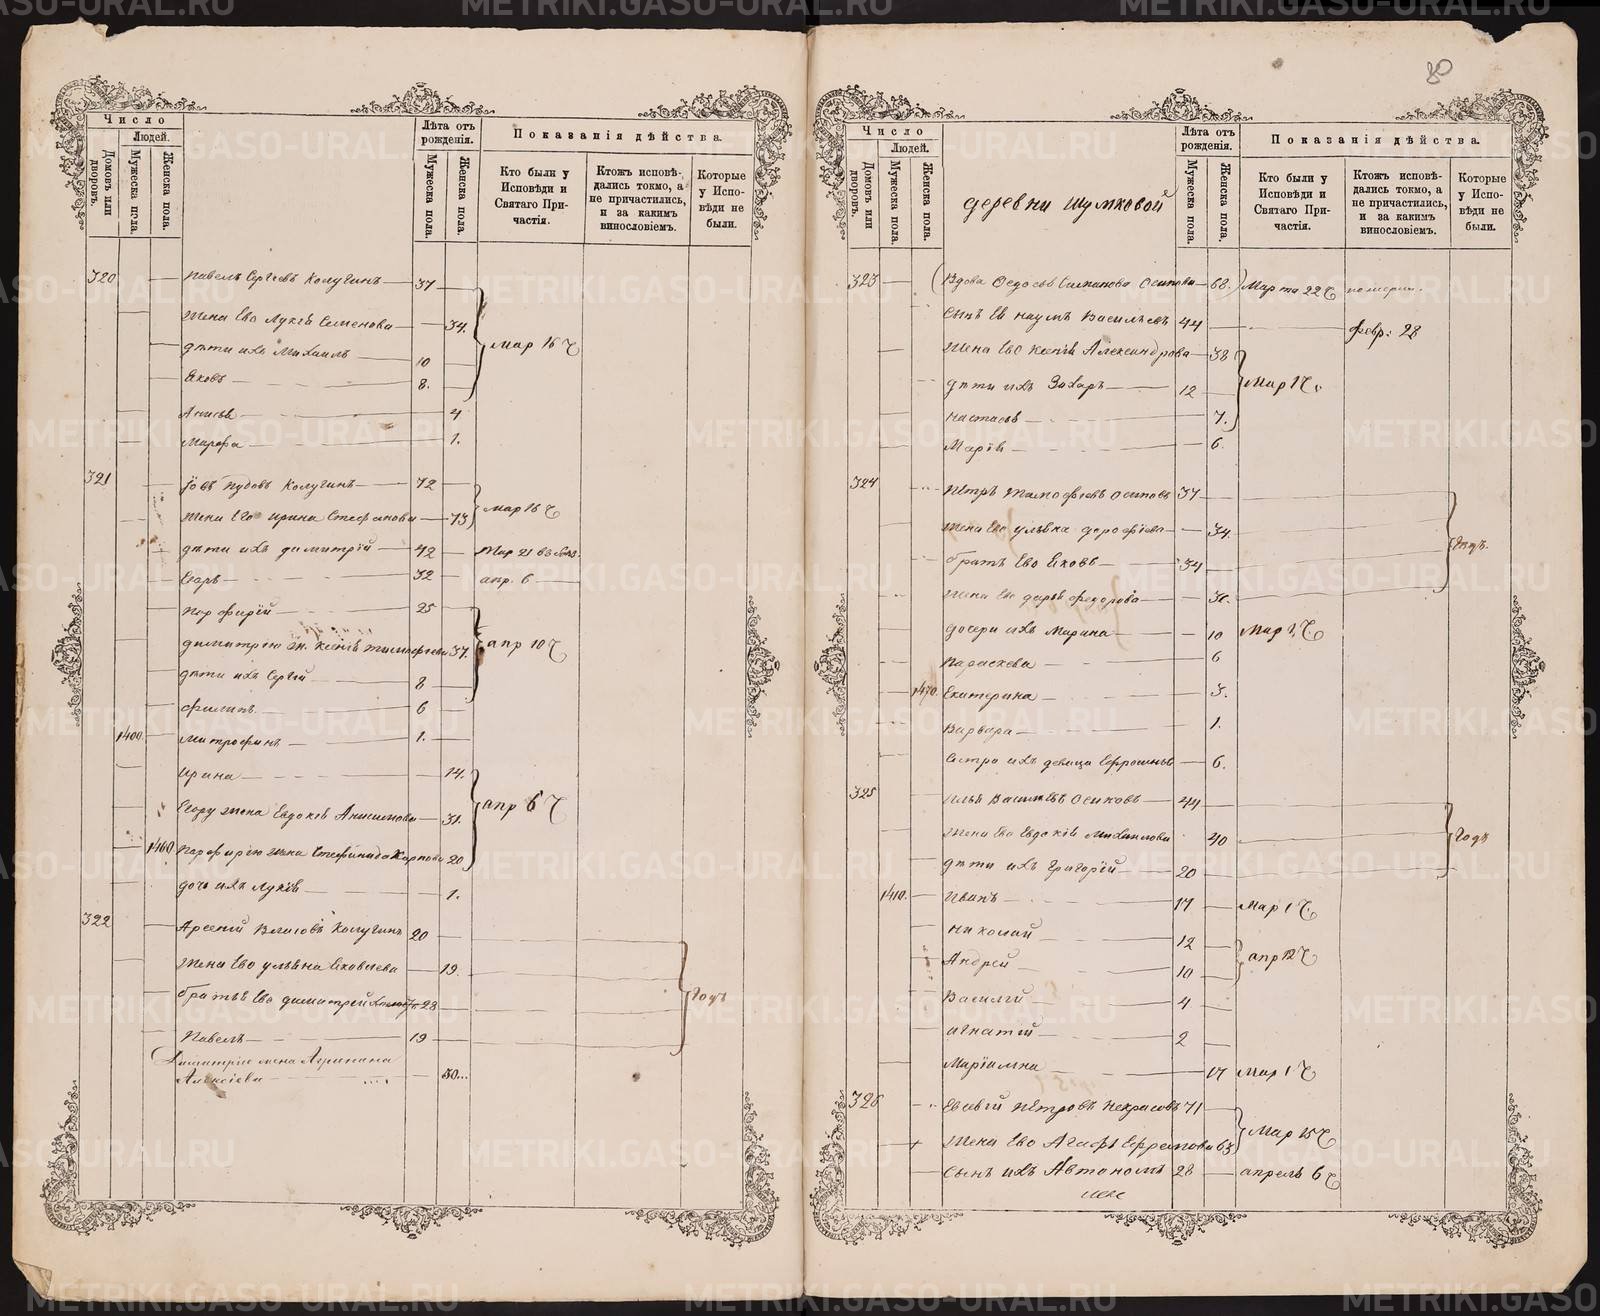 80
Число
Людей.
Домовъ или дворовъ.
Мужеска пола.
Женска пола.
Лѣта отъ рожденія.
Мужеска пола.
Женска пола.
Показанія дѣйства.
Кто были у Исповѣди и Святаго Причастія.
Ктожъ исповѣдались токмо, а не причастились, и за какимъ винословіемъ.
Которые у Исповѣди не были.
320 Павелъ Сергѣевъ Калугинъ 37
Жена Ево Лукія Семенова 34.
дѣти ихъ Михаилъ 10
Мар 16 Ч
Яковъ 8.
Анисья 4
Марфа 1.
321 Іовъ Пудовъ Калугинъ 72
Мар 16 Ч
Жена Его Ирина Стефанова 73
дѣти ихъ димитрій 42 Мар 21
Егоръ 32 апр. 6
Порфирій 25
димитрію ж. Ксенія тимофеева 37. апр 10 Ч
дѣти ихъ Сергій 8
Филипъ 6
1400. Митрофанъ 1.
Ирина 14.
апр 6 Ч
Егору жена Евдокія Анисимова 31.
1460 Порфирію жена Степанида Карпова 20
дочь ихъ Лукія 1.
322 Арсеній Власовъ Калугинъ 20
Жена Ево ульяна Яковлева 19.
братья Ево димитрей 28 Годъ
Павелъ 19
Димитрію жена Агрипина
Алексіева 30...
Число
Людей.
Домовъ или дворовъ.
Мужеска пола.
Женска пола.
деревни Шумковой
Лѣта отъ рожденія.
Мужеска пола.
Женска пола.
Показанія дѣйства.
Кто были у Исповѣди и Святаго Причастія.
Ктожъ исповѣдались токмо, а не причастились, и за какимъ винословіемъ.
Которые у Исповѣди не были.
323 (Вдова Ѳедосья Осипова 68.) Марта 22 Ч
Сынъ Ея наумъ Васильевъ 44 февр: 28
Жена Ево Ксенія Александрова 38
Мар 1 Ч.
дѣти ихъ Захаръ 12
настасья 7.
Марія 6.
324 Петръ тимофѣевъ Осиповъ 37
Жена Ево ульяна дорофіева 34.
Годъ.
братъ Ево Яковъ 34
Жена Ево дарья федорова 31.
дочери ихъ Марина 10 Мар 1, Ч.
Параскева 6
1470. Екатерина 3.
Варвара 1.
Сестра ихъ девица Ефросинья 6.
325 Илья Васильевъ Осиповъ 44
Жена Ево Евдокія Михаилова 40 Годъ
дѣти ихъ Григорій 20
1410. Иванъ 17 Мар 1 Ч.
николай 12
апр 12 Ч
Андрей 10
Василій 4
игнатій 2
Маріамна 17 Мар 1 Ч
326 Евсевій Петровъ Некрасовъ 71
Мар 15 Ч
Жена Ево Агафья Ефремова 63
Сынъ ихъ Автономъ 28 апрель 6 Ч
METRIKI.GASO-URAL.RU